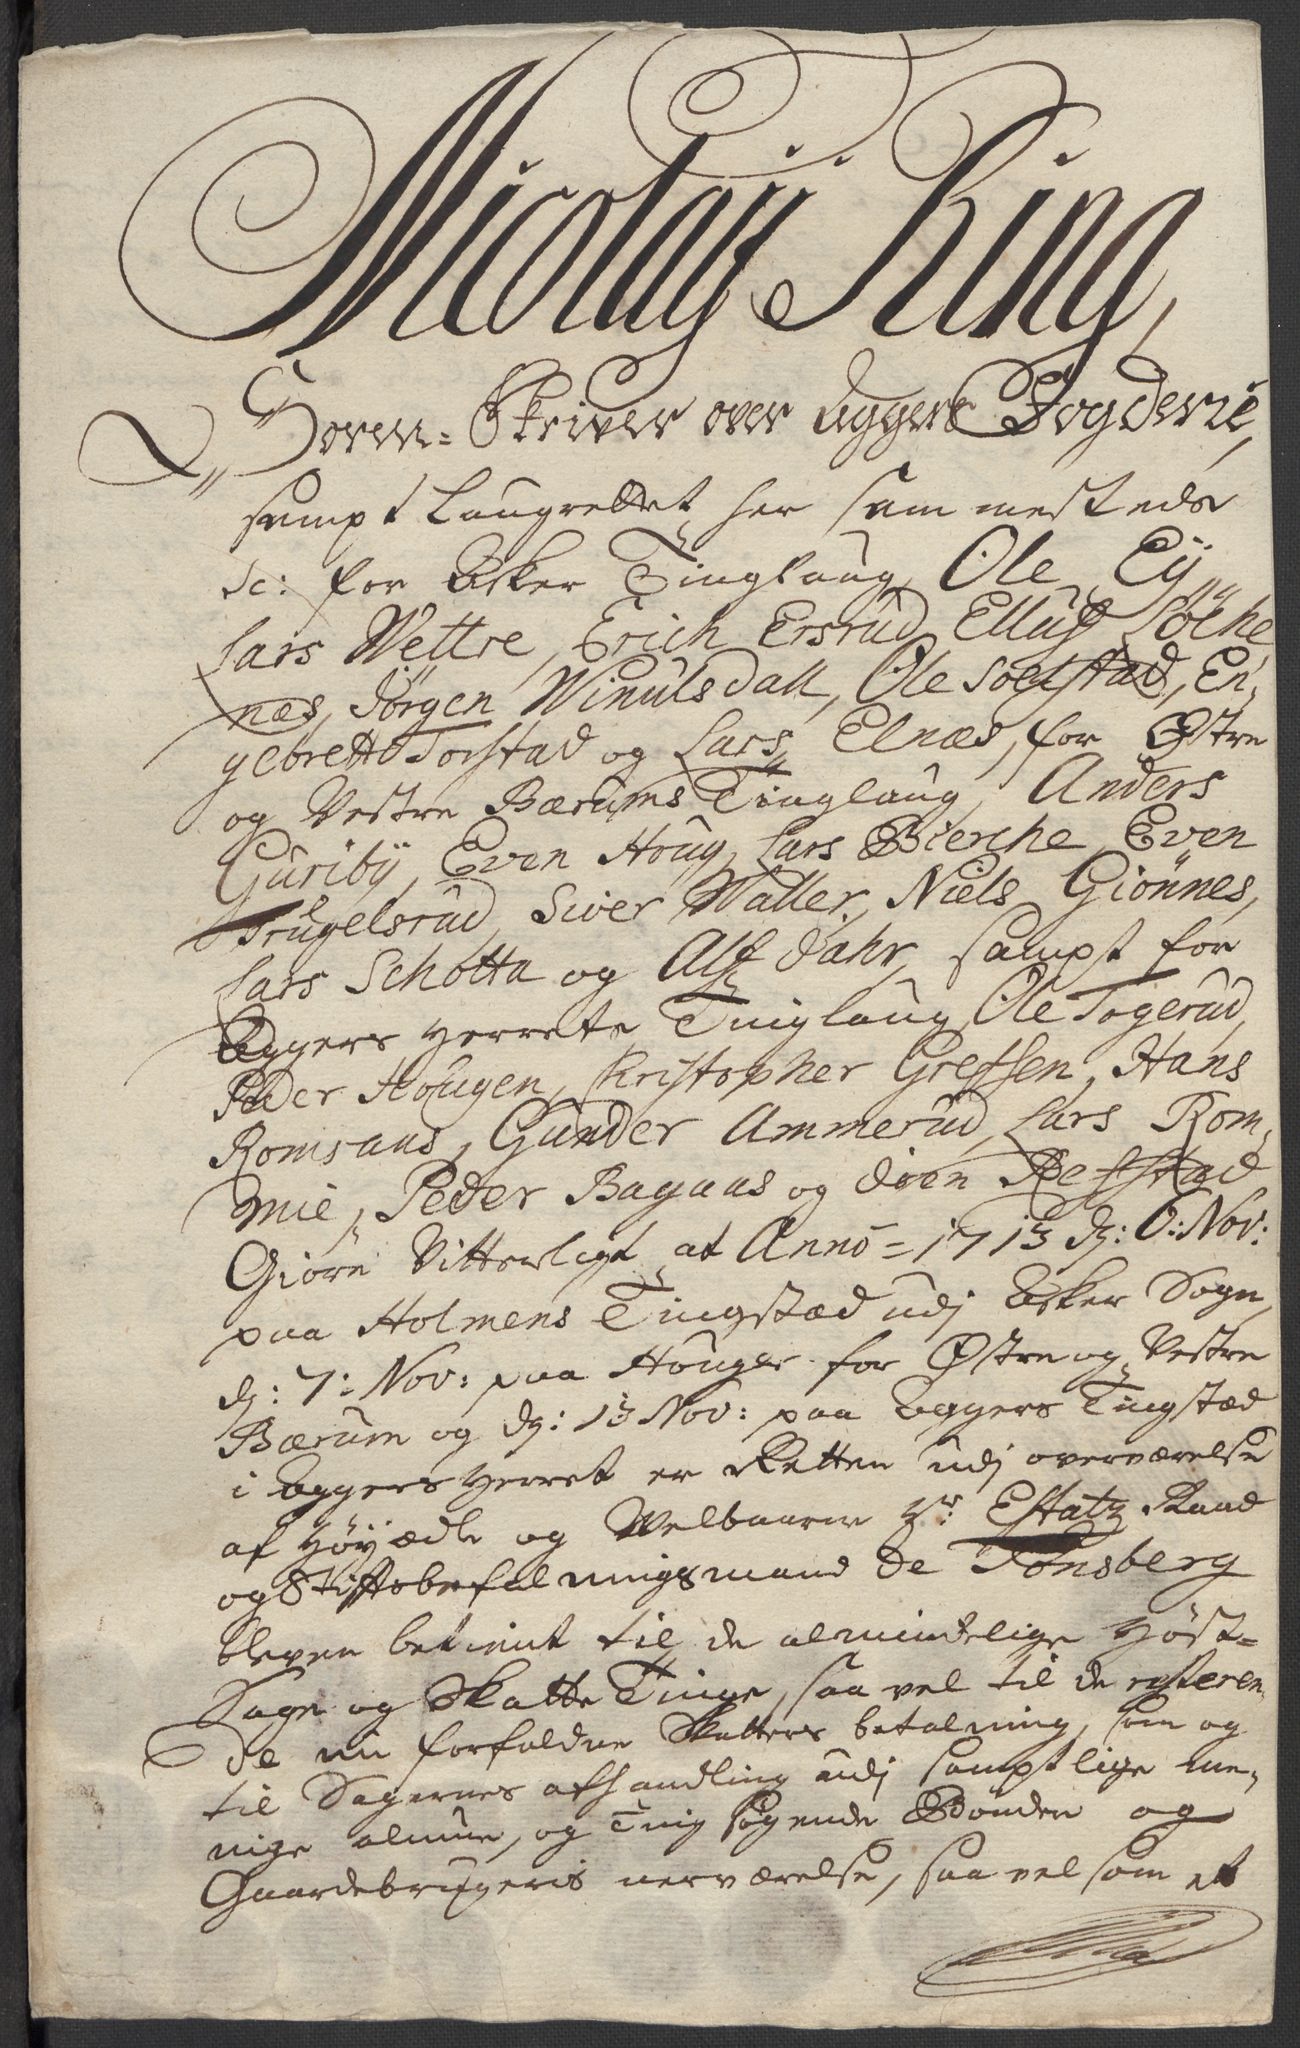 Nicolaÿ Ring
Soren-Skriver over Aggers Fogderie,
sampt Laugrettet her sammesteds
sc: for Asker Tinglaug, Ole Eÿ,
Lars Wettre, Erich Ersrud, Elluf Löche
næs, Jörgen Winulsdall, Ole Soelstad, En,
gebrett Torstad og Lars Elnæs, for Østre
og Vestre Bærums Tinglaug, Anders
Guribÿ, Even Houg, Lars Bierche, Even
Trugelsrud, Siver Waller, Niels Giönnes,
Lars Schotta og Alf Dahr, sampt for
Aggers Herrets Tinglaug, Ole Togerud,
Peder Hougen, Christopher Grefsen, Hans
Romsaas, Gunder Ammerud, Lars Rom,
mie, Peder Bagaas og Joen Refstad
Giöre Vitterligt at Anno = 1713 dg: 6: Nov:
paa Holmens Tingstæd udj Asker Sogn,
dg: 7: Nov: paa Houger for Østre og Vestre
Bærum og dg: 13 Nov: paa Aggers Tingstæd
i Aggers Herret er Retten udj overværelse
af Höÿædle og Welbaarne Hr: Estatz Raad
og Stiftsbefalningsmand de Tonsberg
bleven betient til de almindelige Höst-
Sage og Skatte Tinge, saa vel til de resteren,
de nu forfaldne Skatters betalning, som og
til Sagernes afhandling udj samptlige me,
nige almue, og Ting sögende Bönder og
Gaardebrugeris nerværelse, saa vel som at